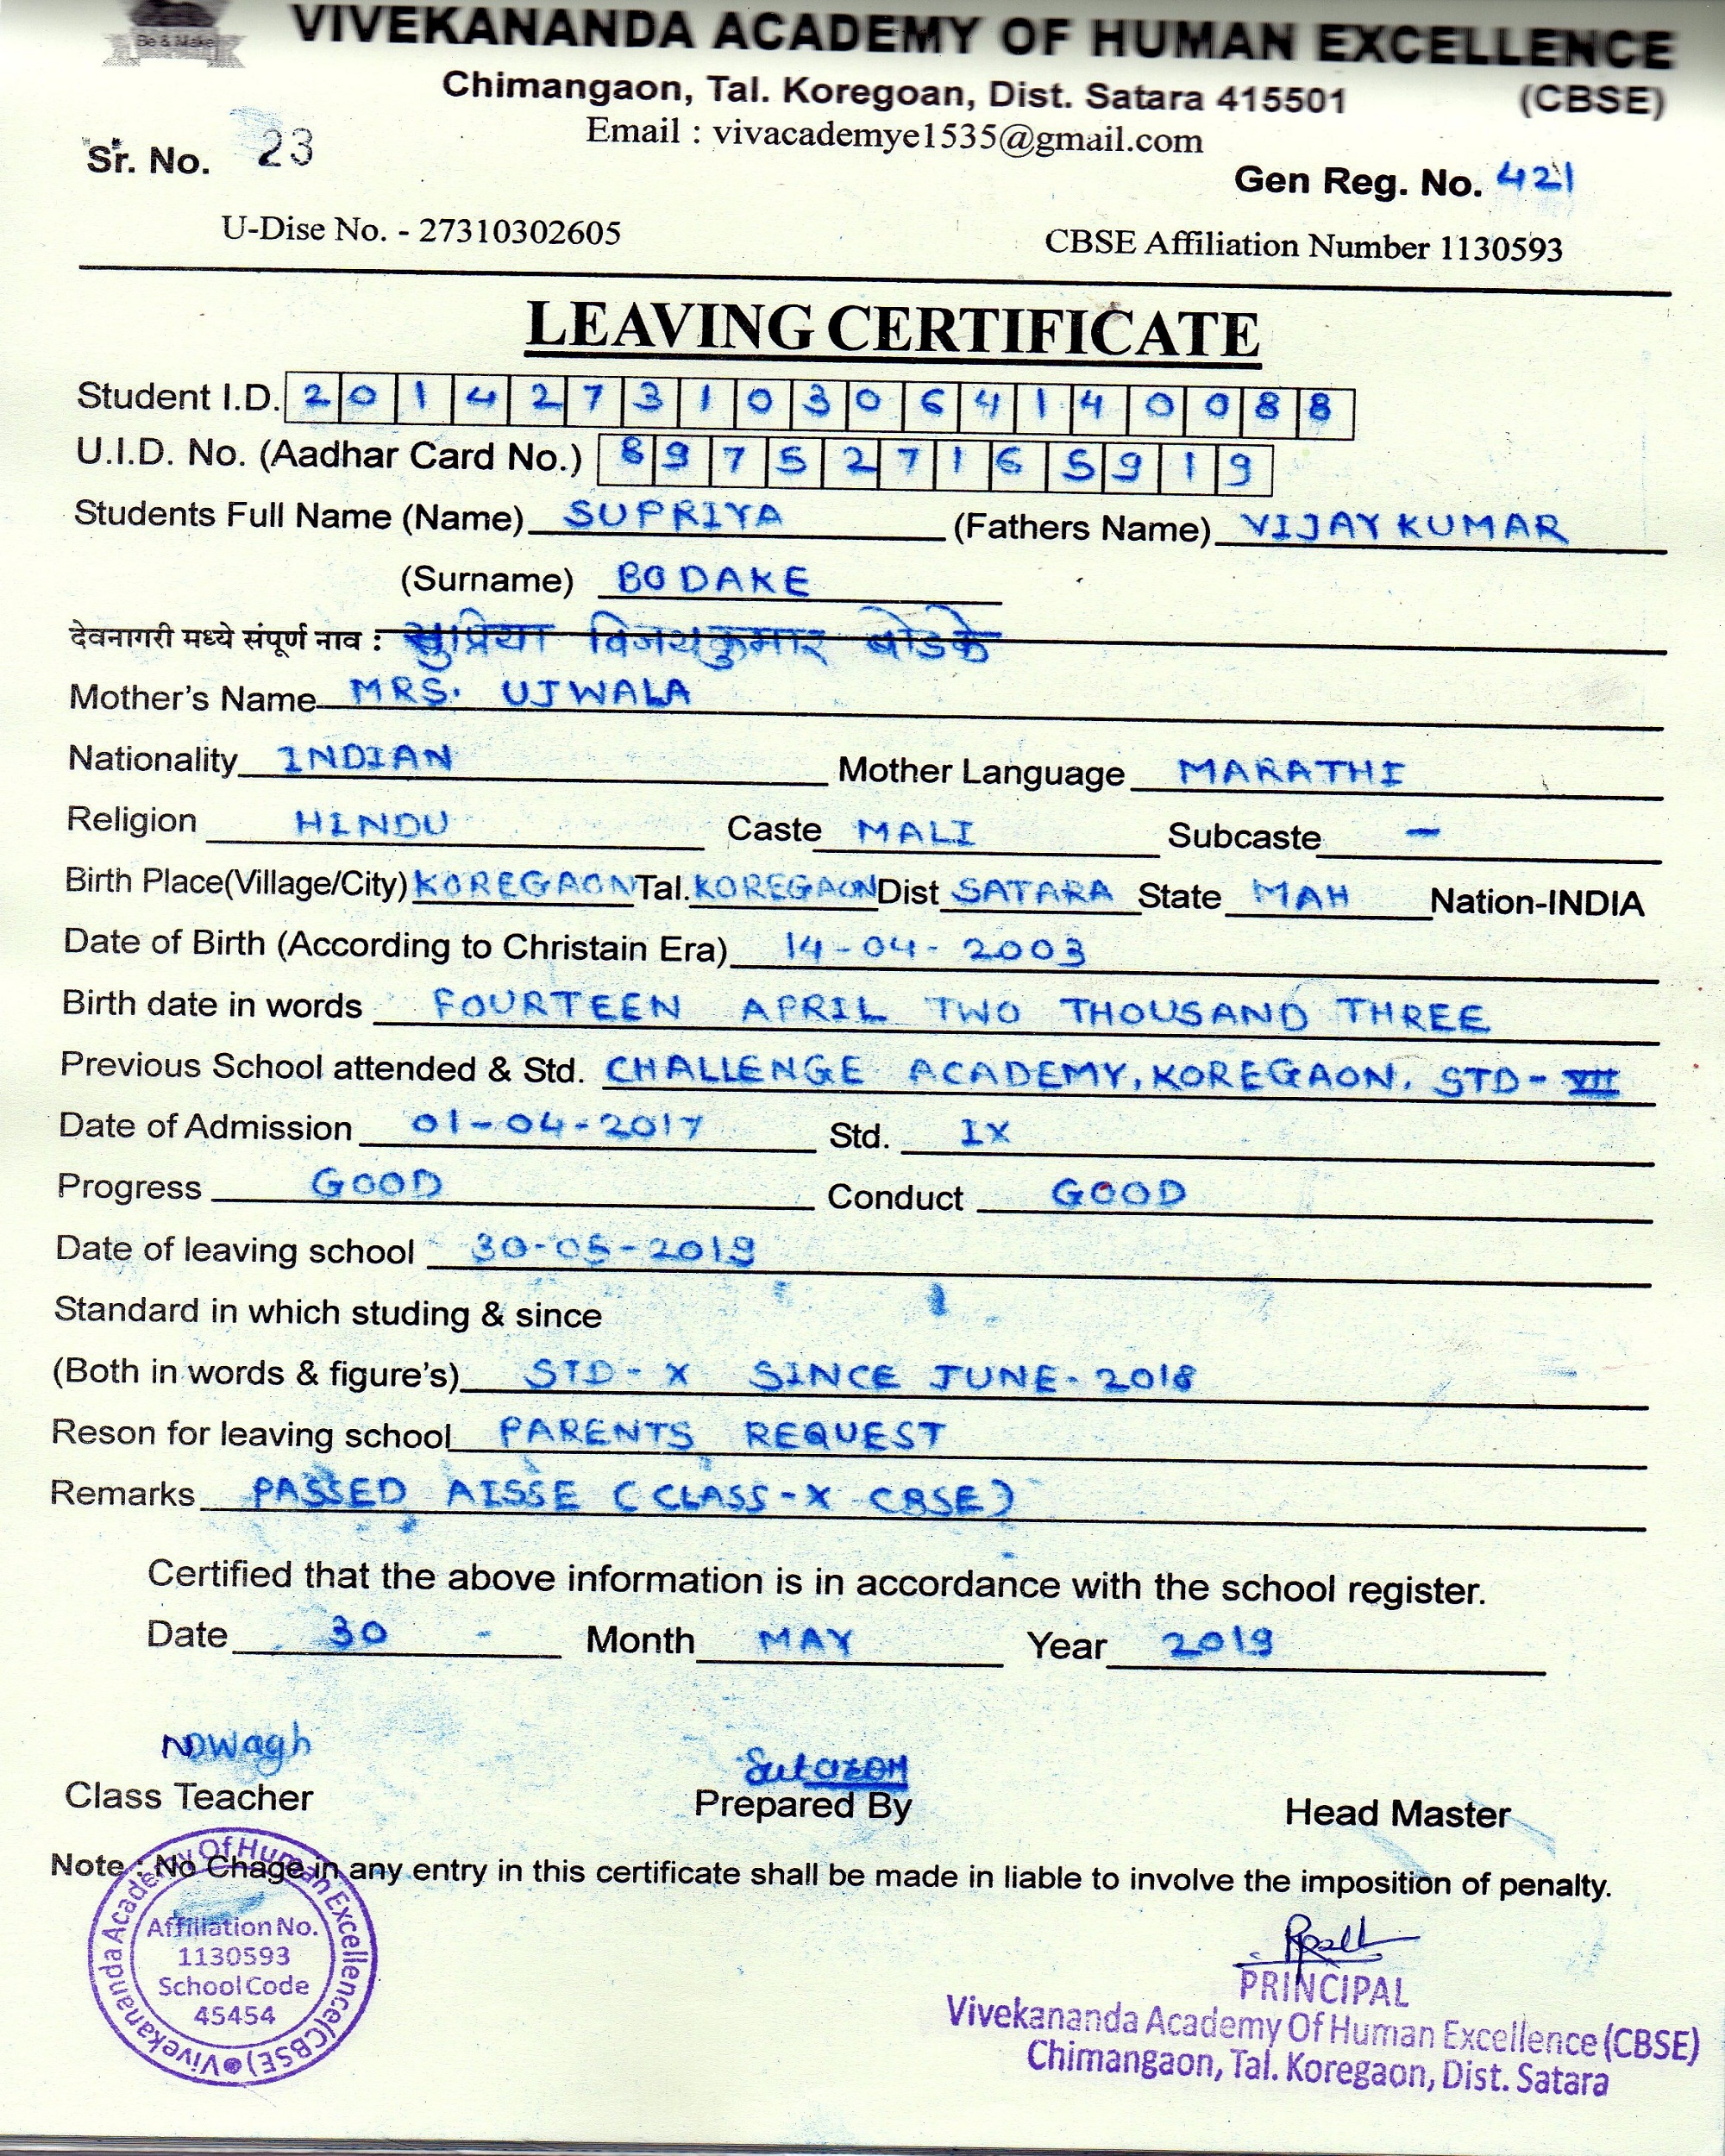 Be & Make
VIVEKANANDA ACADEMY OF HUMAN EXCELLENCE
Chimangaon, Tal. Koregoan, Dist. Satara 415501 (CBSE)
Email : vivacademye1535@gmail.com
Sr. No. 23
Gen Reg. No. 421
U-Dise No. - 27310302605 CBSE Affiliation Number 1130593
LEAVING CERTIFICATE
Student I.D. 2 0 1 4 2 7 3 1 0 3 0 6 4 1 4 0 0 8 8
U.I.D. No. (Aadhar Card No.) 8 9 7 5 2 7 1 6 5 9 1 9
Students Full Name (Name) SUPRIYA (Fathers Name) VIJAY KUMAR
(Surname) BODAKE
देवनागरी मध्ये संपूर्ण नाव : सुप्रिया विजयकुमार बोडके
Mother's Name MRS. UJWALA
Nationality INDIAN Mother Language MARATHI
Religion HINDU Caste MALI Subcaste -
Birth Place(Village/City) KOREGAON Tal. KOREGAON Dist SATARA State MAH Nation-INDIA
Date of Birth (According to Christain Era) 14-04-2003
Birth date in words FOURTEEN APRIL TWO THOUSAND THREE
Previous School attended & Std. CHALLENGE ACADEMY, KOREGAON. STD-VII
Date of Admission 01-04-2017 Std. IX
Progress GOOD Conduct GOOD
Date of leaving school 30-05-2019
Standard in which studing & since
(Both in words & figure's) STD-X SINCE JUNE-2018
Reson for leaving school PARENTS REQUEST
Remarks PASSED AISSE (CLASS-X CBSE)
Certified that the above information is in accordance with the school register.
Date 30 Month MAY Year 2019
NDWagh
Class Teacher Prepared By Head Master
Note : No Chage in any entry in this certificate shall be made in liable to involve the imposition of penalty.
Vivekananda Academy Of Human Excellence (CBSE)
Affiliation No.
1130593
School Code
45454
PRINCIPAL
Vivekananda Academy Of Human Excellence (CBSE)
Chimangaon, Tal. Koregaon, Dist. Satara